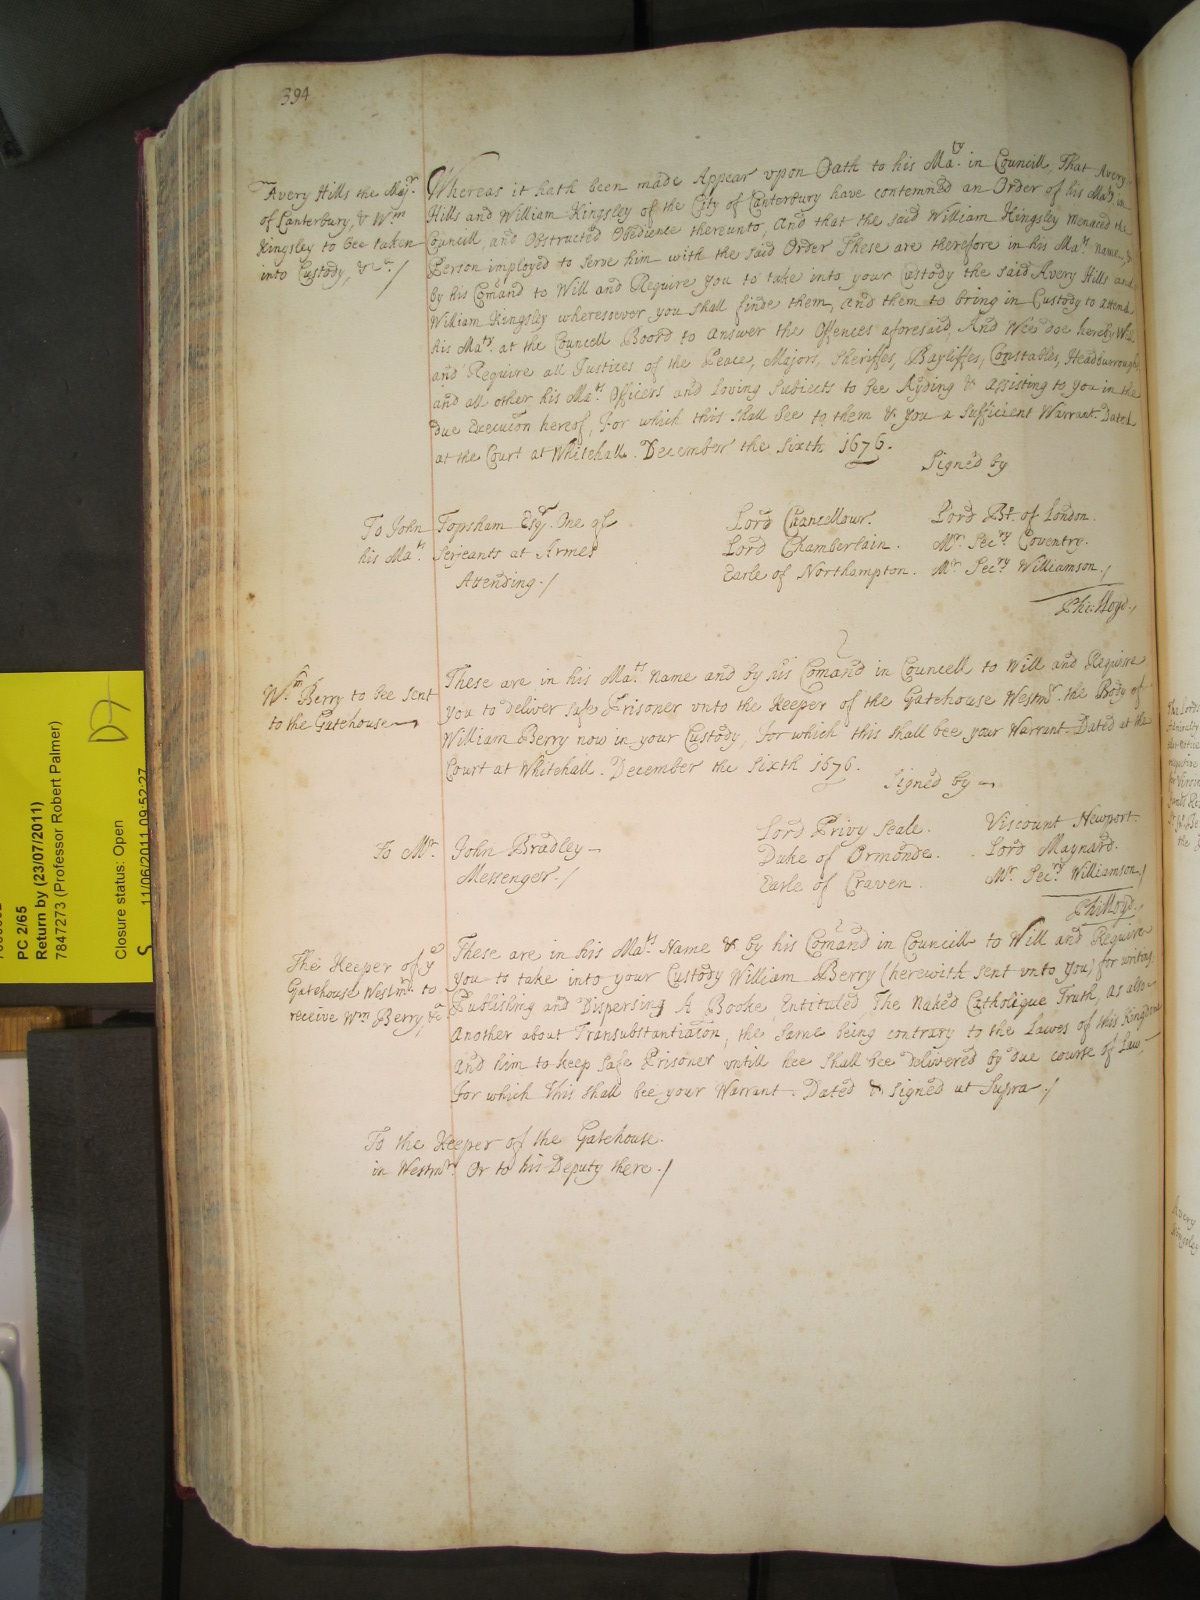 394
Avery Hills the Majr.
of Canterbury, & Wm
Kingsley to bee taken
into Custody, &ca. /
Whereas it hath been made Appear vpon Oath to his Maty. in Councill, That Avery
Hills and William Kingsley of the City of Canterbury have contemned an Order of his Maty. in
Councill, and Obstructed Obedience thereunto, And that the said William Kingsley menaced the
Person imployed to serve him with the said Order These are therefore in his Mats. name, &
by his Comand to Will and Require you to take into your Custody the said Avery Hills and
William Kingsley wheresoever you shall finde them, and them to bring in Custody to attend
his Maty. at the Councell Boord to Answer the Offences aforesaid, And Wee doe hereby Will
and Require all Justices of the Peace, Majors, Sheriffes, Bayliffes, Constables, Headburroughs,
and all other his Mats. Officers and Loving Subiects to bee Ayding & Assisting to you in the
due Execution hereof, For which this shall bee to them & you a sufficient Warrant. Dated
at the Court at Whitehall. December the sixth 1676.
Signed by
To John Topsham Esqr. One of
his Mats. Serjeants at Armes
Attending. /
Lord Chancellour.
Lord Chamberlain.
Earle of Northampton.
Lord Bp. of London.
Mr. Secry. Coventry.
Mr. Secry. Williamson. /
Phi: Lloyd. /
Wm. Berry to bee sent
to the Gatehouse
These are in his Mats. name and by his Comand in Councell to Will and Require
you to deliver safe Prisoner vnto the Keeper of the Gatehouse Westmr. the Body of
William Berry now in your Custody, For which this shall bee your Warrant. Dated at the
Court at Whitehall. December the sixth 1676.
Signed by
To Mr. John Bradley
Messenger. /
Lord Privy Seale.
Duke of Ormonde.
Earle of Craven.
Viscount Newport.
Lord Maynard.
Mr. Secry. Williamson /
Phi: Lloyd. /
The Keeper of ye
Gatehouse Westmr. to
receive Wm Berry, &ca
These are in his Mats. Name & by his Comand in Councill to Will and Require
you to take into your Custody William Berry (herewith sent vnto you) for writing
Publishing and Dispersing A Booke Entituled The Naked Catholique Truth, as also
Another about Transubstantiaton, the same being contrary to the Lawes of this Kingdome
and him to keep safe Prisoner vntill hee shall bee delivered by due course of Law,
For which this shall bee your Warrant. Dated & signed ut Supra. /
To the Keeper of the Gatehouse.
in Westmr. Or to his Deputy there. /
PC 2/65
Return by (23/07/2011)
7847273 (Professor Robert Palmer)
Closure status: Open
11/06/2011 09:52:27